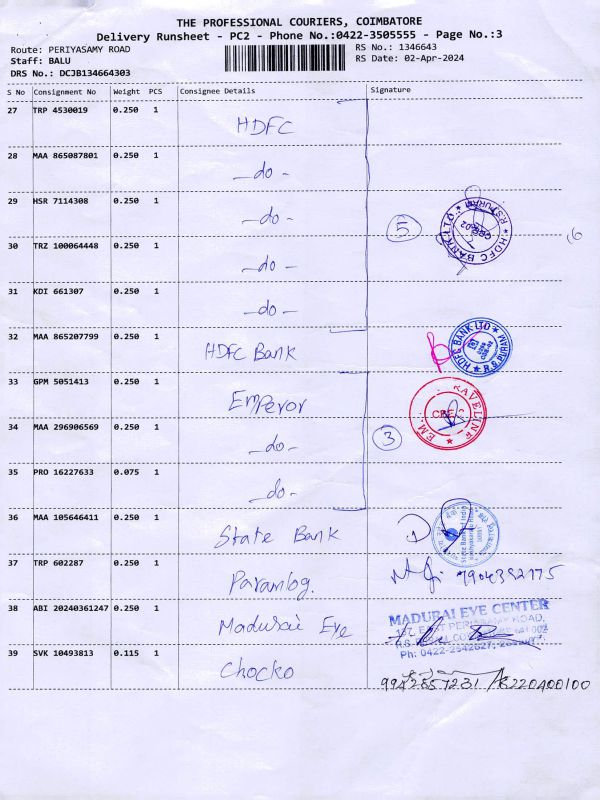 THE PROFESSIONAL COURIERS, COIMBATORE
Delivery Runsheet - PC2 - Phone No.:0422-3505555 - Page No.:3
Route: PERIYASAMY ROAD
RS No.: 1346643
Staff: BALU
RS Date: 02-Apr-2024
DRS No.: DCJB134664303
S No Consignment No Weight PCS Consignee Details Signature
27 TRP 4530019 0.250 1 HDFC
28 MAA 865087801 0.250 1 -do-
29 HSR 7114308 0.250 1 -do-
5
HDFC BANK LTD * R.S.PURAM *
6
30 TRZ 100064448 0.250 1 -do-
31 KDI 661307 0.250 1 -do-
32 MAA 865207799 0.250 1 HDFC Bank
HDFC BANK LTD * R.S.PURAM *
33 GPM 5051413 0.250 1 Emperor
34 MAA 296906569 0.250 1 -do-
3
35 PRO 16227633 0.075 1 -do-
36 MAA 105646411 0.250 1 State Bank
State Bank of India
37 TRP 602287 0.250 1
38 ABI 20240361247 0.250 1 Madurai Eye
MADURAI EYE CENTER
Ph: 0422-2542827,
39 SVK 10493813 0.115 1 Chocko
9942857231 8220400100